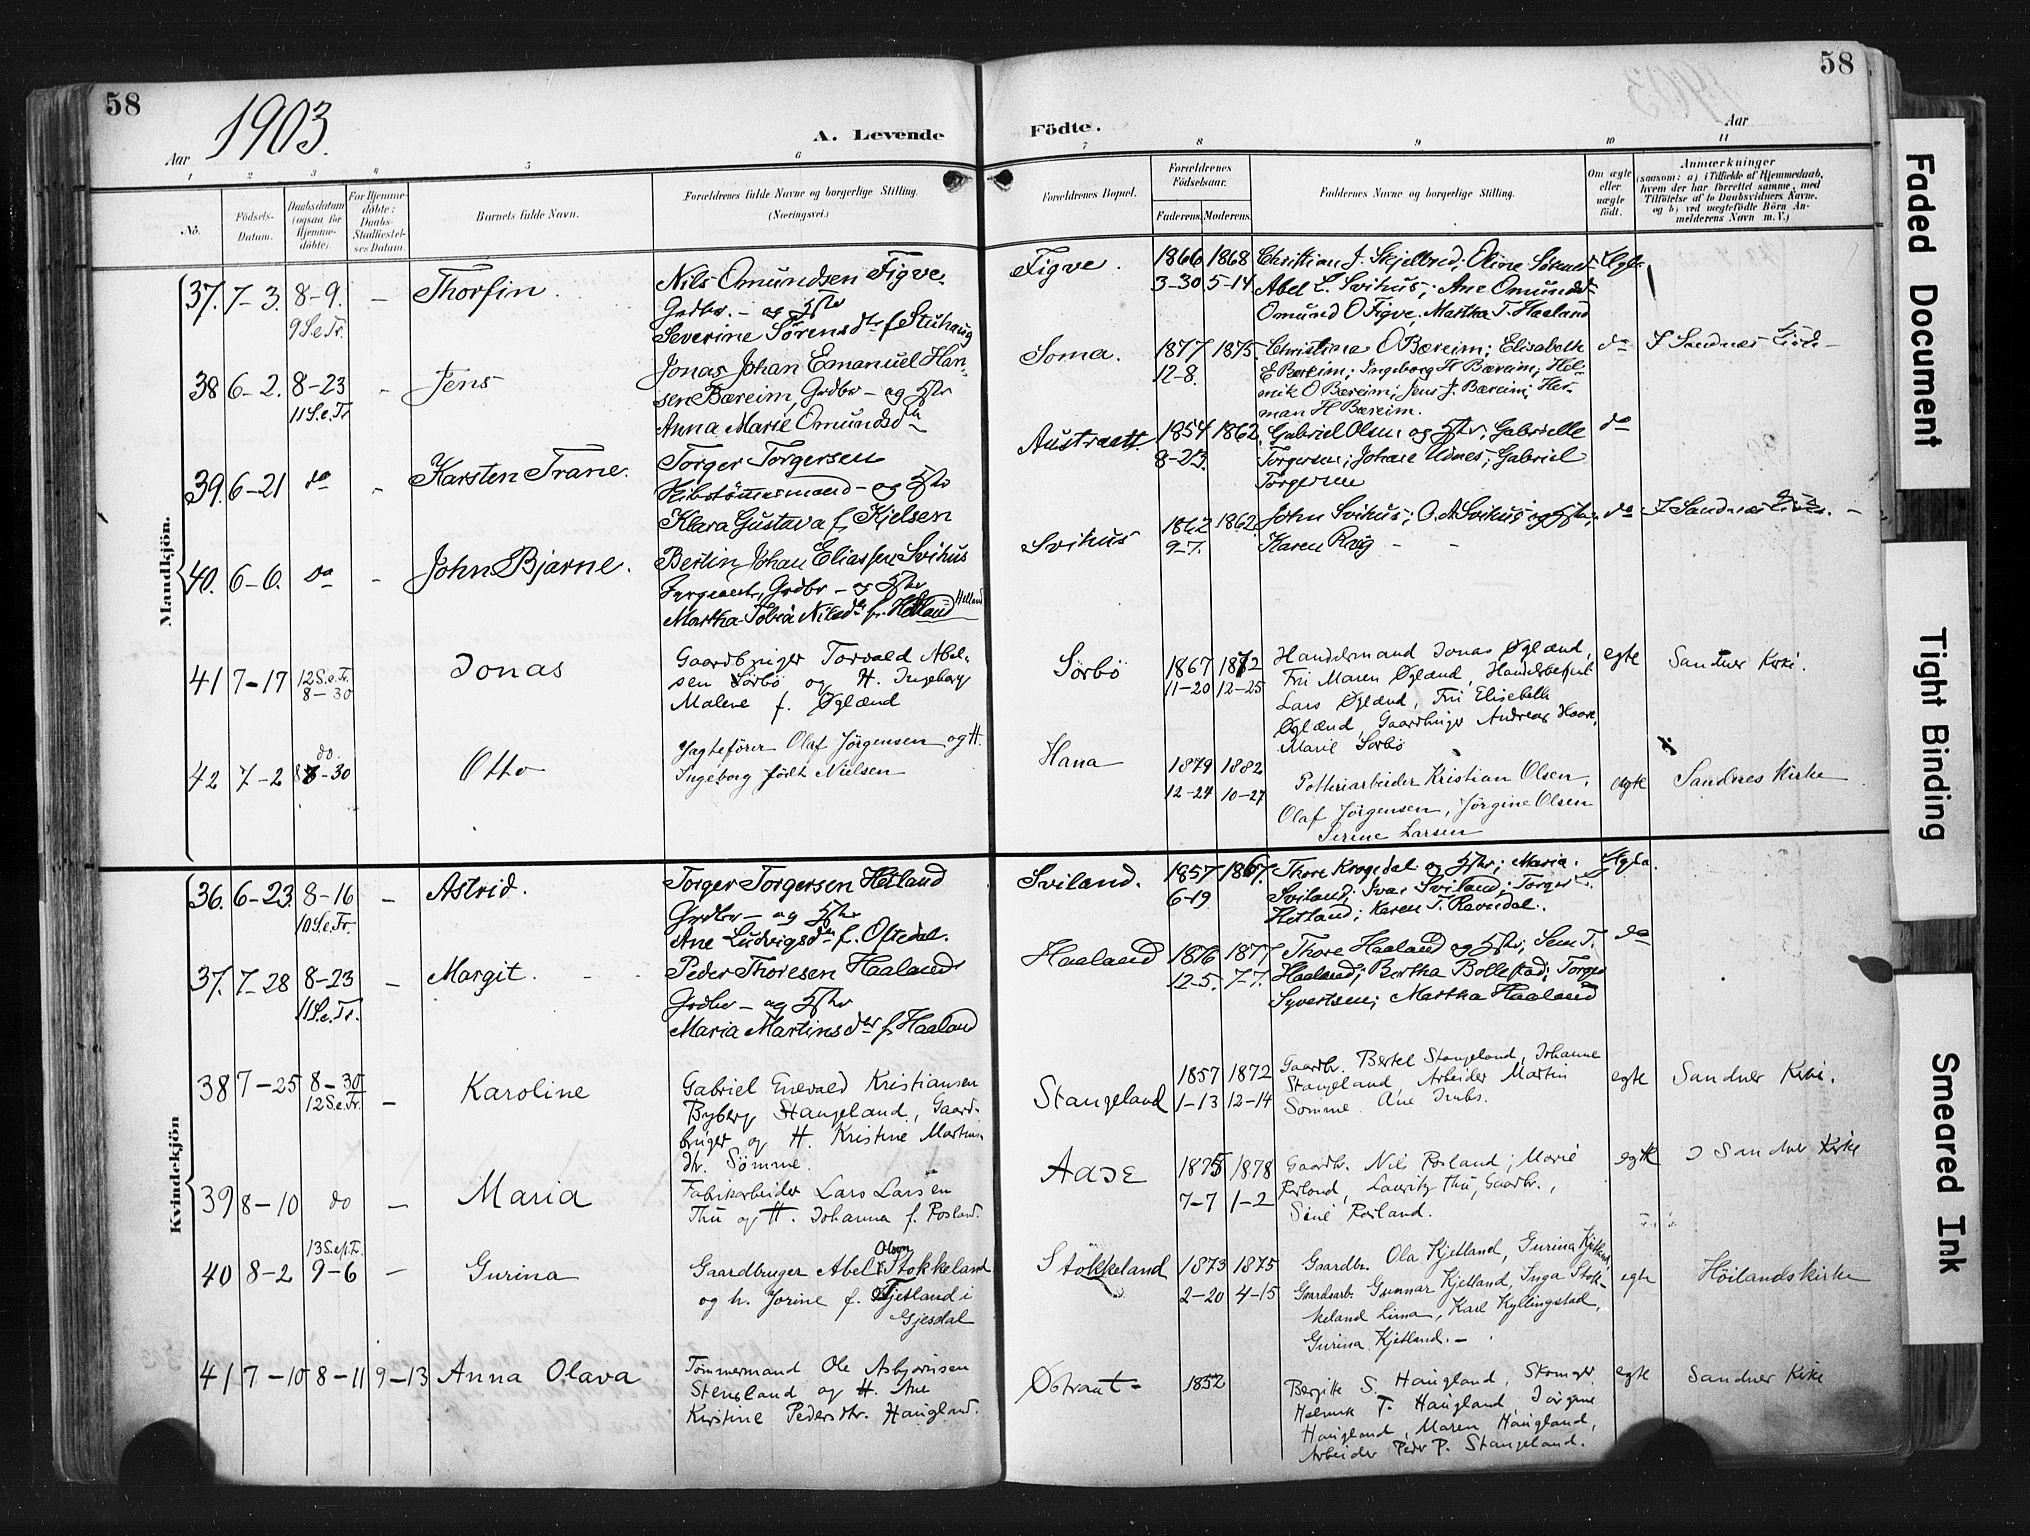 58
1903.
A. Levende
Aar
1 2 3 4 5 6
No.
Födsels-Datum.
Daabsdatum (ogsaa for Hjemme-döbte).
For Hjemme-döbte: Daabs-Stadfæstel-ses Datum.
Barnets fulde Navn.
Forældrenes fulde Navne og borgerlige Stilling. (Næringsvei.)
Mandkjön.
37. 7-3. 8-9. – Thorfin.
9 S.e.Tr.
Nils Omundsen Figve.
Grdbr. – og Hstr
Severine Sørensdtr f. Stuhaug
38 6-2. 8-23 - Jens
11 S.e.Tr
Jonas Johan Emanuel Han-
sen Bæreim, Grdbr – og Hstr
Anna Marie Omundsdtr
39. 6-21 do - Karsten Trane.
Torger Torgersen
og Hstr
Klara Gustava f. Kjelsen
40. 6-6. do - John Bjarne.
Bertin Johan Eliassen Svihus
Sergeant, Grdbr – og Hstr
Martha Tobia Nilsdtr f. Hetland Helland
41 7-17 12 S.e.Tr. Jonas
8-30
Gaardbruger Torvald Abel-
sen Sørbö og H. Ingeborg
Malene f. Øglænd
42 7-2 do 8-30 Otto
Jagtefører Olaf Jörgensen og H.
Ingeborg født Nielsen
Kvindekjön
36. 6-23. 8-16 – Astrid.
10 S.e.Tr.
Torger Torgersen Hetland
Grdbr – og Hstr
Ane Ludvigsdtr f. Oftedal.
37. 7-28 8-23 – Margit.
11 S.e.Tr.
Peder Thoresen Haaland
Grdbr – og Hstr
Maria Martinsdtr f. Haaland
38 7-25 8-30 – Karoline
12 S.e.Tr.
Gabriel Enevald Kristiansen
Byberg Stangeland, Gaard-
bruger og H. Kristine Martins-
dtr. Sømme.
39 8-10 do – Maria
Fabrikarbeider Lars Larsen
Thu og H. Johanna f. Rosland.
40 8-2 13 S.ep.Tr. 9-6 – Gurina
Gaardbruger Abel Olsen Stokkeland
og h. Jorine f. Kjetland i
Gjesdal
41 7-10 8-11 9-13 Anna Olava
Tømmermand Ole Asbjørnsen
Stensland og H. Ane
Kirstine Pedersdtr. Haugland.
58
Födte.
Aar
7 8 9 10 11
Forældrenes Bopæl.
Forældrenes Födselsaar.
Faderens. Moderens.
Faddernes Navne og borgerlige Stilling.
Om ægte eller uægte födt.
Anmærkninger
(saasom: a) i Tilfælde af Hjemmedaab, hvem der har forrettet samme, med Tilföielse af to Daabsvidners Navne, og b) ved uægtefödte Börn An-melderens Navn m. V.)
Figve. 1866 1868
3-30 5-14
Christian J. Skjelbred; Oline
Abel L. Svihus; Ane Omundsd
Omund O Figve, Martha T. Haaland
Ægte
Soma. 1877 1875
12-8.
Christina O Bæreim; Elisabeth
E Bæreim; Ingeborg H Bæreim; Hel-
mik O Bæreim; Jens J. Bæreim; Her-
man H Bæreim.
do I Sandnes
Austraatt. 1854 1862
8-23.
Gabriel Olsen og Hstr; Gabrielle
Torgersen; Johan Udnes; Gabriel
Torgersen
do
Svihus 1862 1862
9-7.
John Svihus; O. A Svihus og Hstr;
Karen Røig
do I Sandnes
Sörbö 1867 1872
11-20 12-25
Handelsmand Jonas Øglænd,
Fru Maren Øglænd, Handelsbetjent
Lars Øglænd, Fru Elisebeth
Øglænd, Gaardbruger Andreas
Marie Sørbö
egte Sandnes Kirke.
Hana 1879 1882
12-24 10-27
Potteriarbeider Kristian Olsen,
Olaf Jørgensen, Jørgine Olsen
Serine Larsen
egte Sandnes Kirke
Sviland. 1857 1867.
6-19
Thore Krogedal og Hstr; Maria
Sviland; Ivar Sviland; Torger
Hetland; Karen T. Ravndal.
Ægte.
Haaland 1876 1877
12-5. 7-7.
Thore Haaland og Hstr; Sem T.
Haaland; Bertha Bollestad; Torger
Syvertsen; Martha Haaland
do
Stangeland 1857 1872
1-13 12-14
Gaardbr. Bertel Stangeland, Johanne
Stangeland, Arbeider Martin
Sømme. Ane
egte Sandnes Kirke.
Aase 1875 1878
7-7 1-2
Gaardbr. Nils Rosland; Marie
Rosland, Lauritz Thu, Gaardbr.,
Sine Rosland.
egte I Sandnes Kirke
Stokkeland 1873 1875
2-20 4-15
Gaardbr. Ola Kjetland, Gurina Kjetland,
Gaardarb. Gunnar Kjetland, Inga Stok-
keland Lima, Karl Kyllingstad,
Gurina Kjetland. –
egte Höilandskirke
Østraat – 1852
Bergitte S. Haugland, Skomager
Helmik T. Haugland, Jørgine
Haugland, Maren Haugland,
Arbeider Peder P. Stangeland.
egte Sandnes Kirke
Faded Document
Tight Binding
Smeared Ink